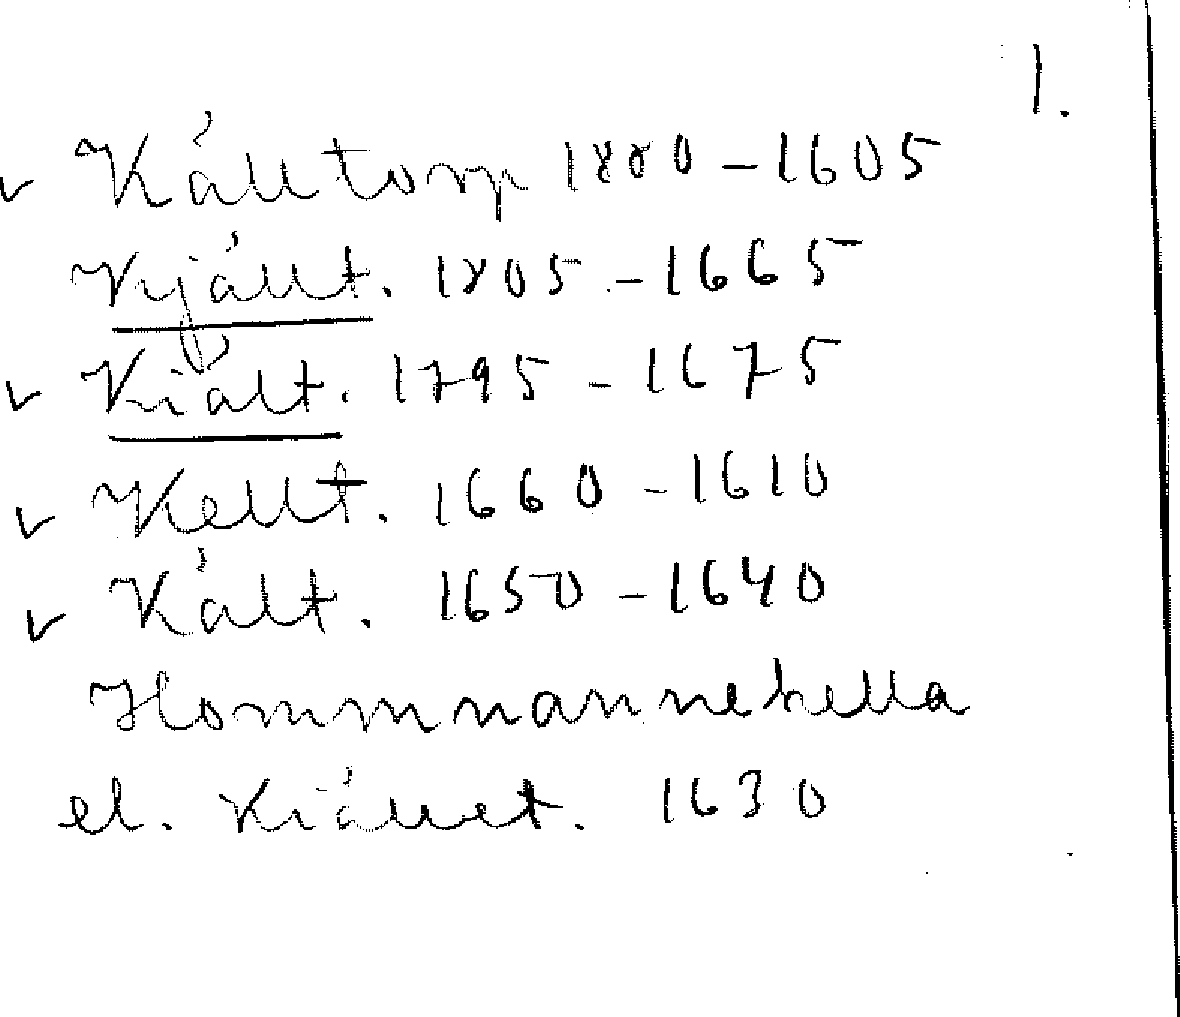 1.
v Källtorp 1880 – 1605
Kjällt. 1805 – 1665
v Kiält. 1795 – 1675
v Kellt. 1660 – 1610
v Kält. 1650 – 1640
Hommnannekella
el. Kiället. 1630